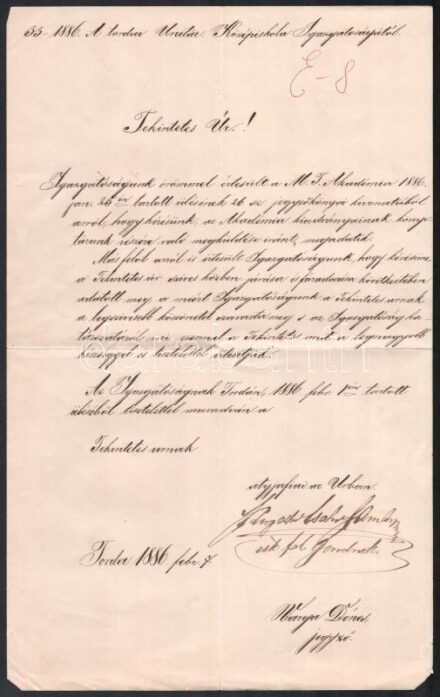 33-1886. A tordai Unitár. Középiskola Igazgatóságától.
E-8
Tekintetes Úr!
Igazgatóságunk örömmel értesült a M. T. Akadémia 1886.
jan. 25 én tartott ülésének 26 sz jegyzőkönyvi kivonatából
arról, hogy kérésünk, az Akadémia kiadványainak könyv-
tárunk részére való megküldése iránt, megadatik.
Másfelől arról is értesült Igazgatóságunk, hogy kérésünk
a Tekintetes úr szives közben járása és fáradozása következtében
adatott meg, a miért Igazgatóságunk a Tekintetes urnak
a legszivesebb köszönetet szavazta meg s az Igazgatóság ha-
tározatáról mi ezennel a Tekintetes urat a legnagyobb
készséggel és tisztelettel értesitjük.
Az Igazgatóságnak Tordán, 1886 febr. 1 én tartott
üléséből tisztelettel maradván a
Tekintetes urnak
atyafiai az Urban
isk. fel. Gondnok.
Torda 1886 febr. 7
Varga Dénes
jegyző.